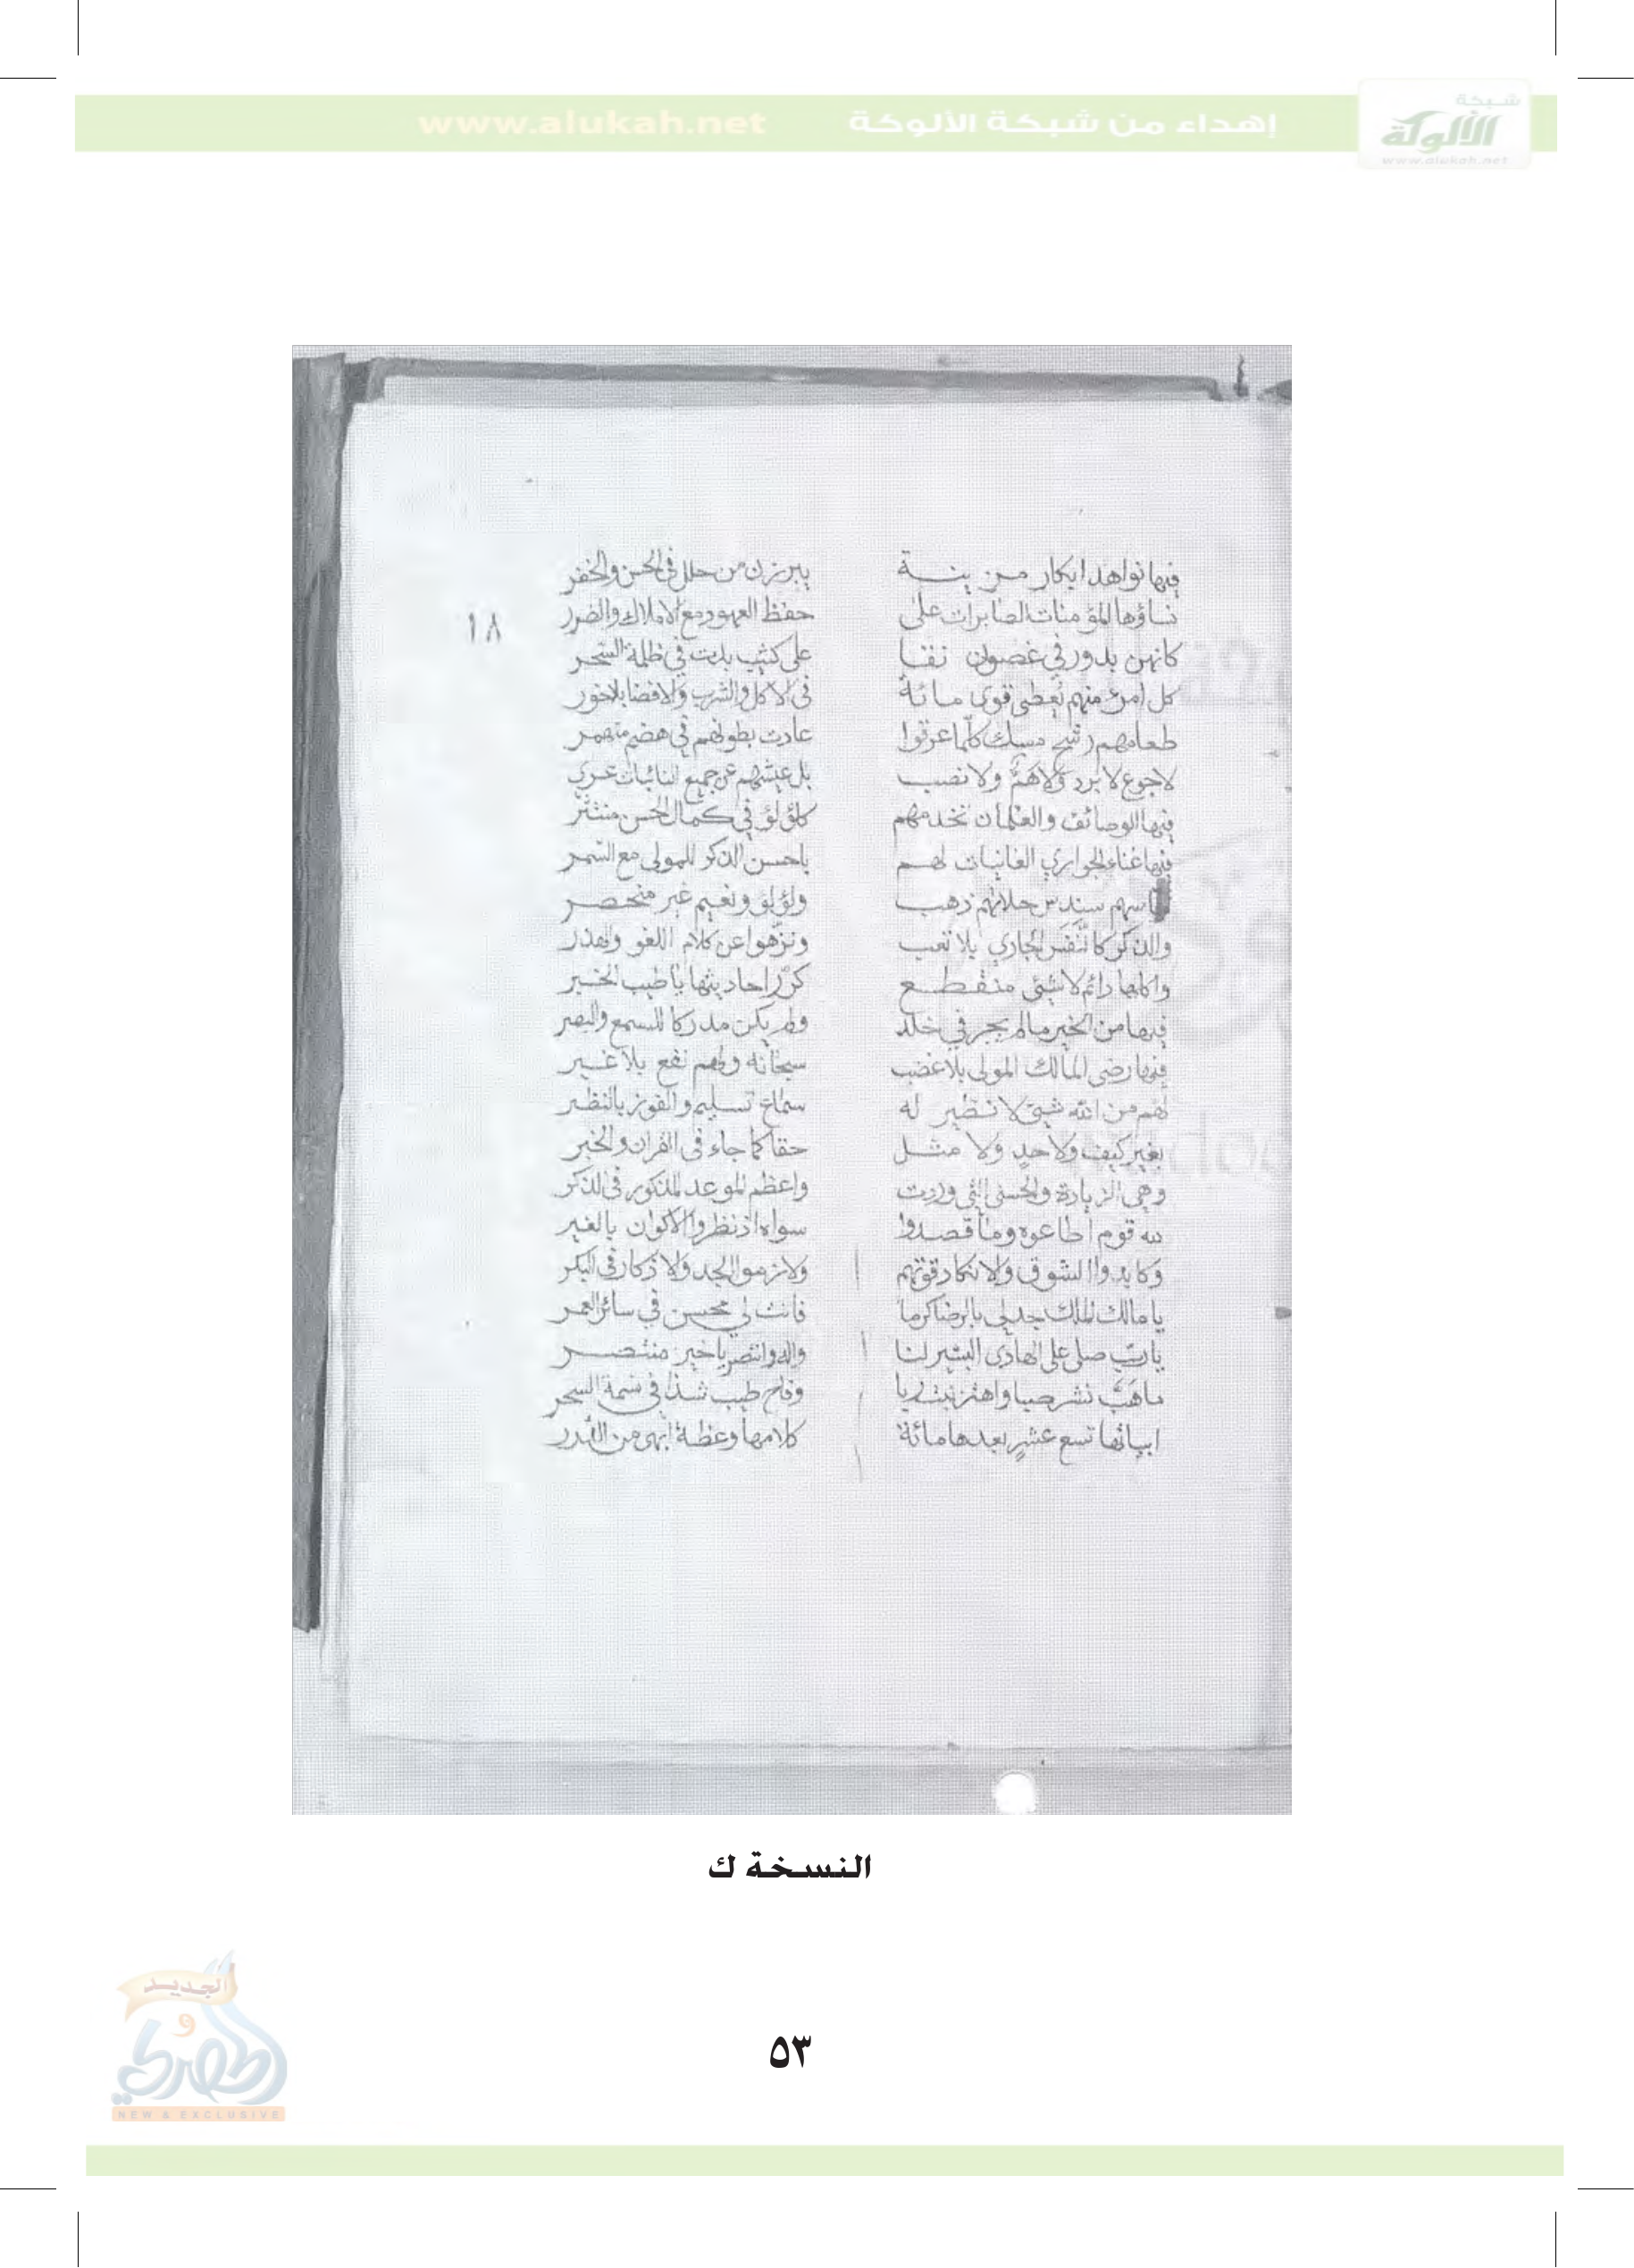 شبكة
الألوكة
www.alukah.net
إهداء من شبكة الألوكة www.alukah.net
فيها نواهد ابكار مزينة يبرزن من حلل في الحسن والخفر
نساؤها المؤمنات الصابرات على حفظ العهود مع الاملاك والضرر
١٨
كانهن بدور في غصون نقا على كثيب بدت في ظلمة السحر
كل امرئ منهم يعطى قوى مائة في الاكل والشرب والافضا بلا خور
طعامهم رشح مسك كلما عرقوا عادت بطونهم في هضم منهمر
لا جوع لا برد ولا هم ولا نصب بل عيشهم عن جميع النائبات عري
فيها الوصائف والغلمان تخدمهم كلؤلؤ في كمال الحسن منتثر
فيها غناء الجواري الغانيات لهم باحسن الذكر للمولى مع السمر
سندس حلاتهم ذهب ولؤلؤ ونعيم غير منحصر
والذكر كالنفس الجاري بلا تعب ونزهوا عن كلام اللغو والهذر
واكلها دائم لا شيئ منقطع كرر احاديثها يا طيب الخبر
فيها من الخير ما لم يجر في خلد ولم يكن مدركا للسمع والبصر
فيها رضى المالك المولى بلا غضب سبحانه ولهم نفع بلا غير
لهم من الله شيئ لا نظير له سماع تسليم والفوز بالنظر
بغير كيف ولا حد ولا مثل حقا كما جاء في القران والخبر
وهي الزيادة والحسنى التي وردت واعظم الموعد المذكور في الذكر
لله قوم اطاعوه وما قصدوا سواه اذ نظروا الاكوان بالغير
وكابدوا الشوق والانكاد قوتهم ولازموا الجد والاذكار في البكر
يا مالك الملك جد لي بالرضا كرما فانت لي محسن في سائر العمر
يا رب صل على الهادي البشير لنا واله وانتصر يا خير منتصر
ما هب نشر صبا واهتز نبت ربا وفاح طيب شذا في نسمة السحر
ابياتها تسع عشر بعدها مائة كلامها وعظة ابهى من الدرر
النسخة ك
٥٣
الجديد
و
الحصري
NEW & EXCLUSIVE